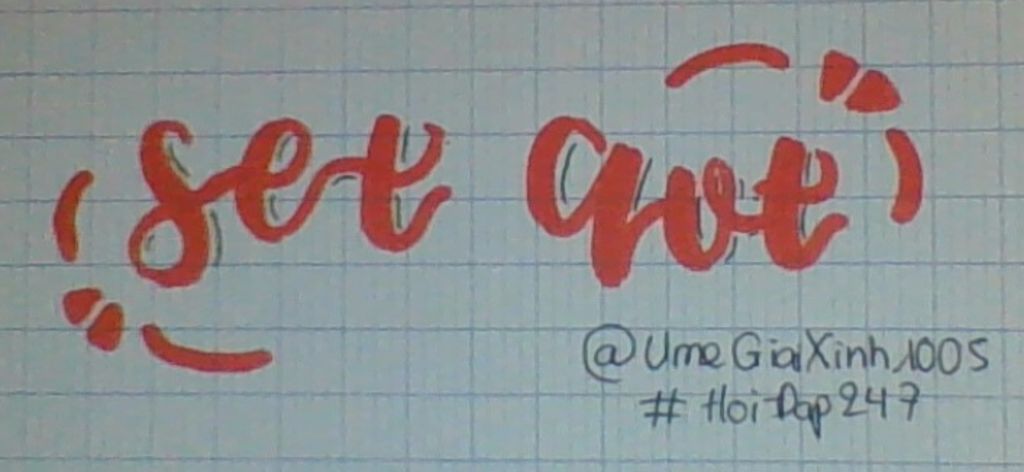 set qvt
@UmeGiaXinh1005
#HoiDap247